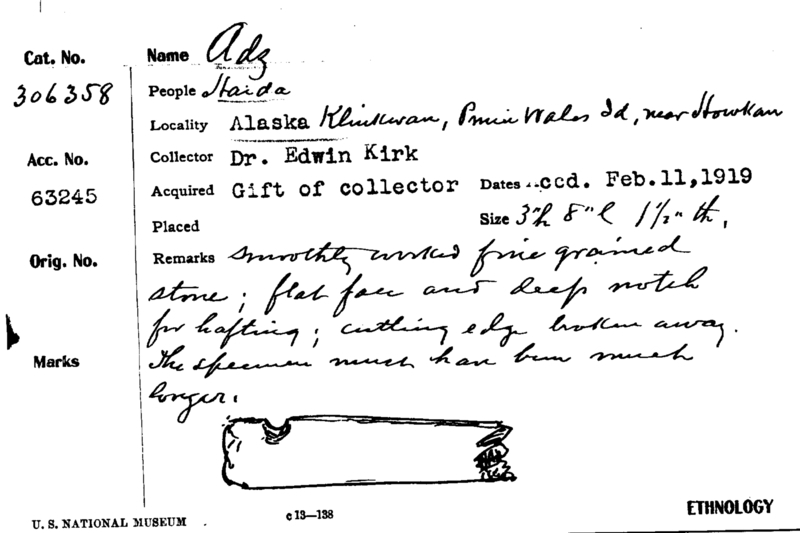 Cat. No. Name Adz
306358 People Haida
Locality Alaska Klinkwan, Prnin Wales Id, near Howkan
Acc. No. Collector Dr. Edwin Kirk
63245 Acquired Gift of collector Dates ..ccd. Feb.11,1919
Placed Size 3"h 8"l 1 1/2" th,
Orig. No. Remarks smoothly worked fine grained
stone; flat face and deep notch
for hafting; cutting edge broken away.
Marks The specimen much have been much
longer.
ETHNOLOGY
U. S. NATIONAL MUSEUM c13—138